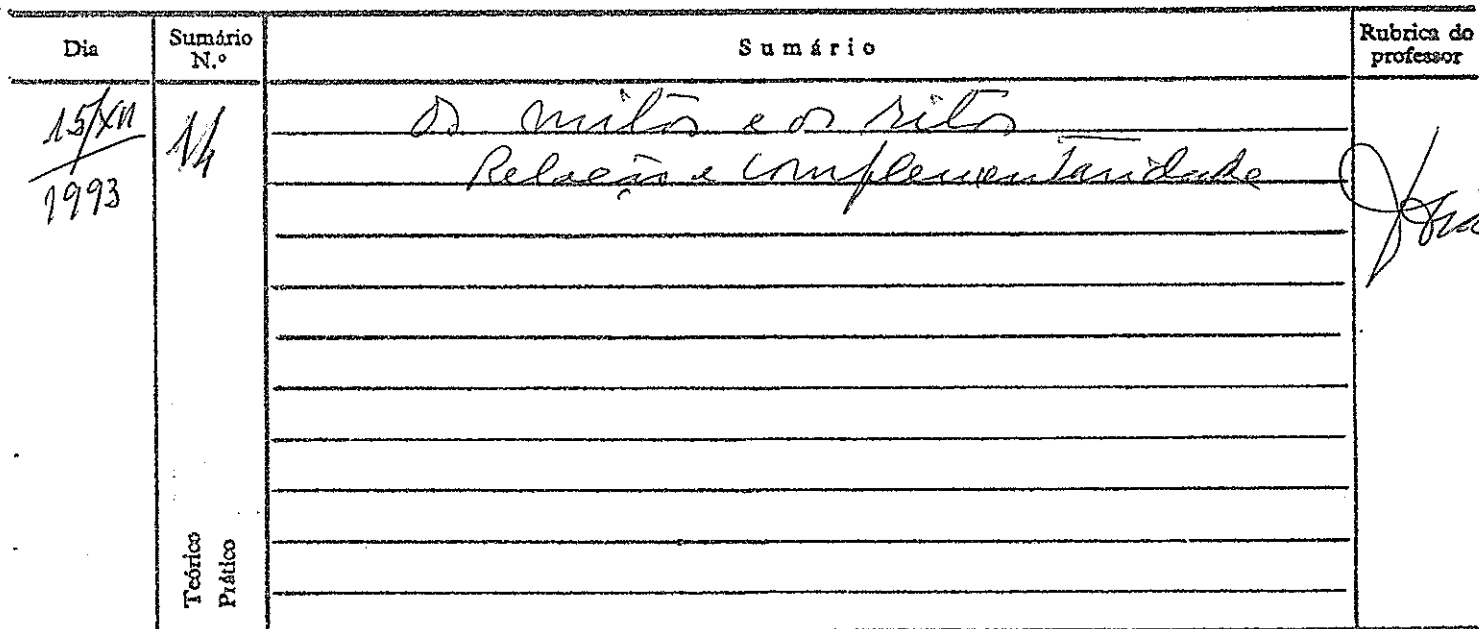 Dia
Sumário N.º
Sumário
Rubrica do professor
15/XII
1993
14
Os mitos e os ritos
Relação e complementaridade
Teórico
Prático